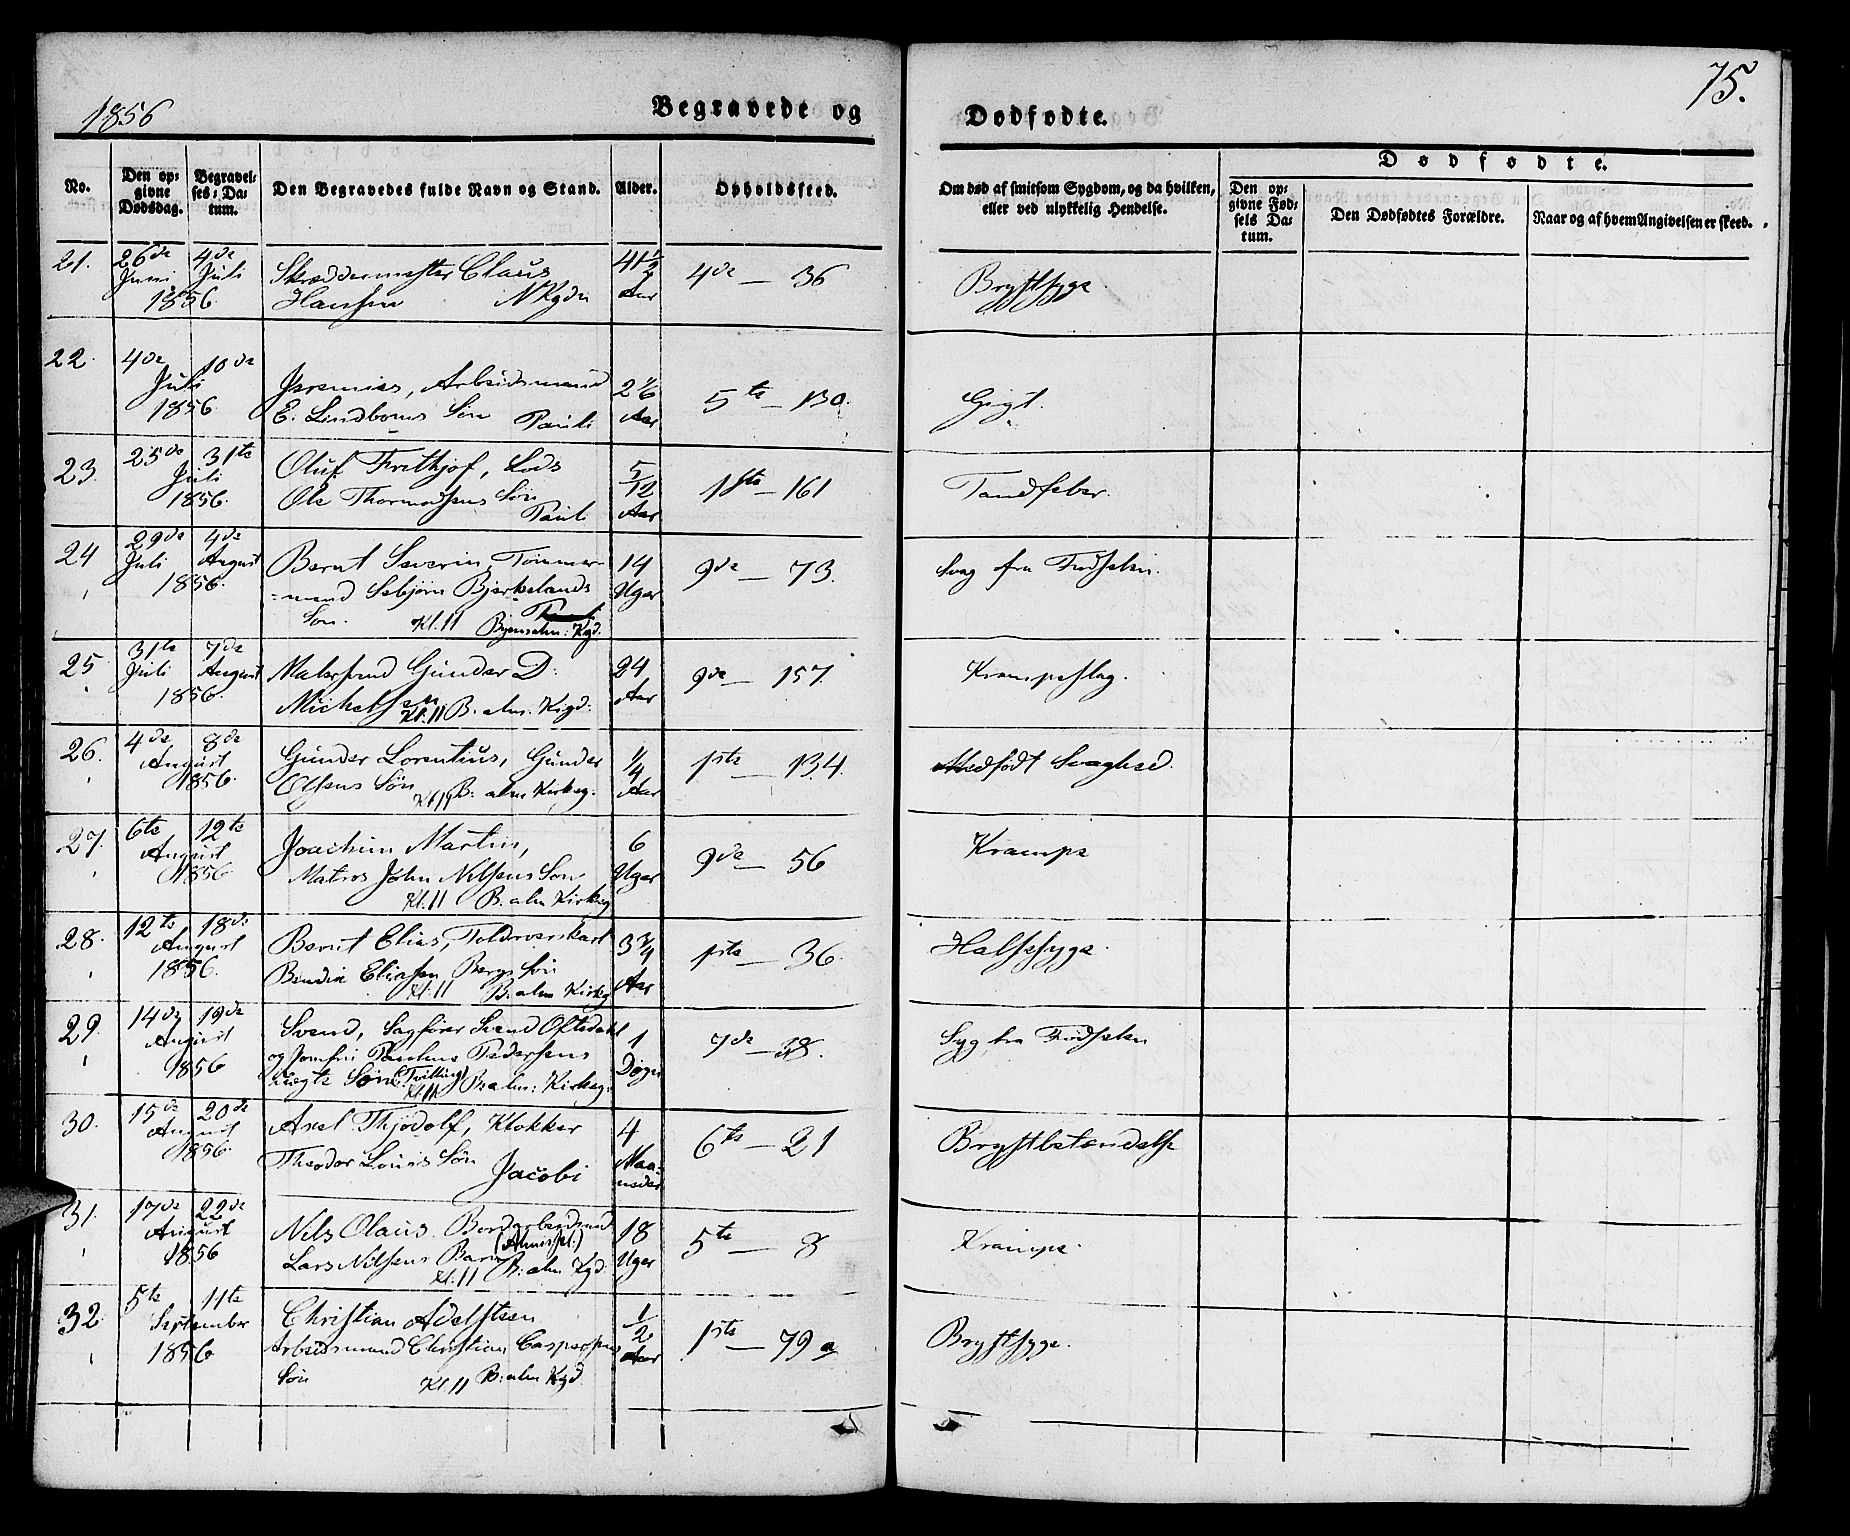 1856
Begravede og
Dødfødte.
75.
No.
Den op-
givne
Dødsdag.
Begravel-
ses-Da-
tum.
Den Begravedes fulde Navn og Stand.
Alder.
Opholdssted.
Om død af smitsom Sygdom, og da hvilken,
eller ved ulykkelig Hendelse.
Dødfødte.
Den op-
givne Fød-
sels Da-
tum.
Den Dødfødtes Forældre.
Naar og af hvem Angivelsen er skeed.
21. 26de Juni 4de Juli 1856.
Skræddermester Claus
Hansen NKgdn
41 1/2 Aar
4de — 36
Brystsyge.
22. 4de 10de Juli 1856.
Jeremias, Arbeidsmand
E. Lindboms Søn Pauli
2 1/6 Aar
5te — 130.
Gigt.
23. 25de 31te Juli 1856.
Oluf Frithjof, Lods
Ole Thormodsens Søn
Pauli
5/12 Aar
1ste — 161
Tandfeber.
24 29de Juli 4de August 1856.
Bernt Severin, Tømmer-
=mand Sebjørn Bjerkelands
Søn. Kl. 11 Byens alm: Kgd.
14 Uger
9de — 73.
Svag fra Fødselen.
25. 31te Juli 7de August 1856.
Malersvend Gunder D.
Michelsen Kl. 11 B. alm. Kigd:
24 Aar
9de — 157.
Krampeslag.
26. 4de 8de August 1856.
Gunder Lorentius, Gunder
Olsens Søn B: alm Kirkeg.
1/4 Aar
1ste — 134.
Medfødt Svaghed.
27. 6te 12te August 1856.
Joachim Martin,
Matros John Nilsens Søn
Kl. 11 B. alm Kirkeg
6 Uger
9de — 56
Krampe
28. 12te 18de August 1856.
Bernt Elias, Toldroerskarl
Bendix Eliasen Bergs Søn
Kl. 11 B. alm Kirkeg
3 3/4 Aar
1ste — 36.
Halssyge.
29. 14de 19de August 1856
Svend, Sagfører Svend Oftedahl
og Jomfru Pauline Pedersens
uægte Søn (Tvilling) B. alm: Kirkeg.
1 Døgn
7de — 38.
Syg fra Fødselen
30. 15de 20de August 1856.
Axel Thjodolf, Klokker
Theodor Louis Søn Jacobi
4 Maa-
neder
6te — 21
Brystbetændelse
31. 17de 22de August 1856
Nils Olaus. Bordarbeidsmd
Lars Nilsens Barn
Kl. 11 B. alm Kgd.
18 Uger
5te — 8
Krampe.
32. 5te 11te September 1856
Christian Adelsteen
Arbeidsmand Christian Caspersens
Søn Kl. 11 B. alm Kgd.
1/2 Aar
1ste — 79 a
Brystsyge.